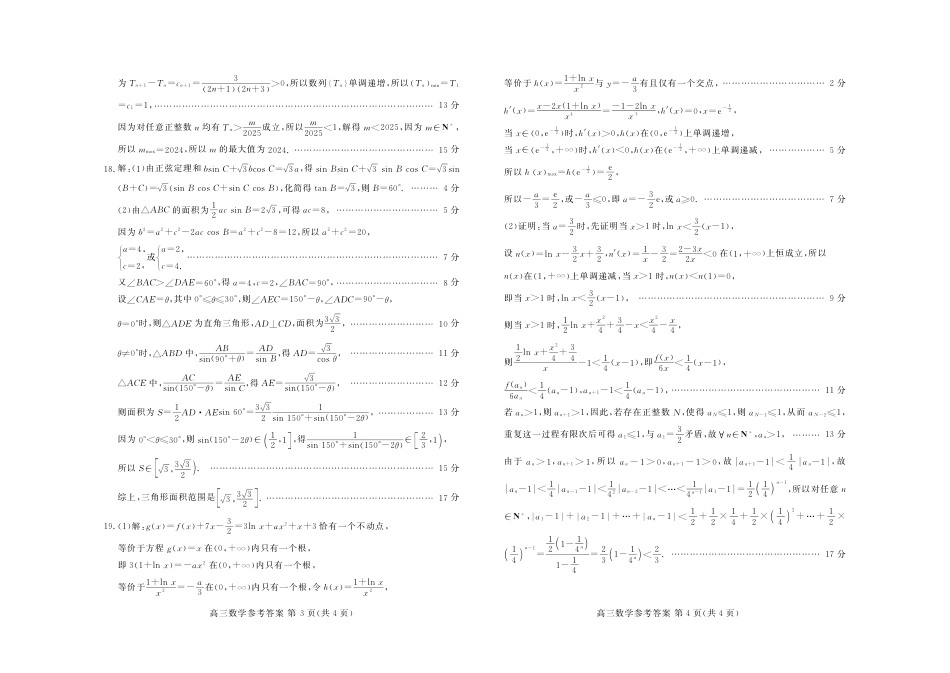 为 Tₙ₊₁－Tₙ＝cₙ₊₁＝3/((2n＋1)(2n＋3))＞0,所以数列{Tₙ}单调递增,所以(Tₙ)min＝T₁
＝c₁＝1, …… 13 分
因为对任意正整数 n 均有 Tₙ＞m/2025成立,所以m/2025＜1,解得 m＜2025,因为 m∈N⁺,
所以 mmax＝2024,所以 m 的最大值为 2024. …… 15 分
18.解:(1)由正弦定理和 bsin C＋√3bcos C＝√3a,得 sin Bsin C＋√3 sin B cos C＝√3sin
(B＋C)＝√3(sin B cos C＋sin C cos B),化简得 tan B＝√3,则 B＝60°. …… 4 分
(2)由△ABC 的面积为1/2 ac sin B＝2√3,可得 ac＝8, …… 5 分
因为 b²＝a²＋c²－2ac cos B＝a²＋c²－8＝12,所以 a²＋c²＝20,
{a＝4, c＝2, 或{a＝2, c＝4. …… 7 分
又∠BAC＞∠DAE＝60°,得 a＝4,c＝2,∠BAC＝90°, …… 8 分
设∠CAE＝θ,其中 0°≤θ≤30°,则∠AEC＝150°－θ,∠ADC＝90°－θ,
θ＝0°时,则△ADE 为直角三角形,AD⊥CD,面积为3√3/2, …… 10 分
θ≠0°时,△ABD 中,AB/sin(90°＋θ)＝AD/sin B,得 AD＝√3/cos θ, …… 11 分
△ACE 中,AC/sin(150°－θ)＝AE/sin C,得 AE＝√3/sin(150°－θ), …… 12 分
则面积为 S＝1/2 AD·AEsin 60°＝3√3/2 · 1/(sin 150°＋sin(150°－2θ)), …… 13 分
因为 0°＜θ≤30°,则 sin(150°－2θ)∈(1/2,1],得1/(sin 150°＋sin(150°－2θ))∈[2/3,1),
所以 S∈[√3,3√3/2). …… 15 分
综上,三角形面积范围是[√3,3√3/2]. …… 17 分
19.(1)解:g(x)＝f(x)＋7x－3/2＝3ln x＋ax²＋x＋3 恰有一个不动点,
等价于方程 g(x)＝x 在(0,＋∞)内只有一个根,
即 3(1＋ln x)＝－ax² 在(0,＋∞)内只有一个根,
等价于(1＋ln x)/x²＝－a/3在(0,＋∞)内只有一个根,令 h(x)＝(1＋ln x)/x²,
高三数学参考答案 第 3 页(共 4 页)
等价于 h(x)＝(1＋ln x)/x²与 y＝－a/3有且仅有一个交点, …… 2 分
h′(x)＝(x－2x(1＋ln x))/x⁴＝(－1－2ln x)/x³,h′(x)＝0,x＝e^(－1/2),
当 x∈(0,e^(－1/2))时,h′(x)＞0,h(x)在(0,e^(－1/2))上单调递增,
当 x∈(e^(－1/2),＋∞)时,h′(x)＜0,h(x)在(e^(－1/2),＋∞)上单调递减, …… 5 分
所以 h (x)max＝h(e^(－1/2))＝e/2,
所以－a/3＝e/2,或－a/3≤0,即 a＝－3/2 e,或 a≥0. …… 7 分
(2)证明:当 a＝3/2时,先证明当 x＞1 时,ln x＜3/2(x－1),
设 n(x)＝ln x－3/2 x＋3/2,n′(x)＝1/x－3/2＝(2－3x)/2x＜0 在(1,＋∞)上恒成立,所以
n(x)在(1,＋∞)上单调递减,当 x＞1 时,n(x)＜n(1)＝0,
即当 x＞1 时,ln x＜3/2(x－1), …… 9 分
则当 x＞1 时,1/2 ln x＋x²/4＋3/4－x＜x²/4－x/4,
则(1/2 ln x＋x²/4＋3/4)/x－1＜1/4(x－1),即f(x)/6x＜1/4(x－1),
f(aₙ)/6aₙ＜1/4(aₙ－1),aₙ₊₁－1＜1/4(aₙ－1), …… 11 分
若 aₙ＞1,则 aₙ₊₁＞1,因此,若存在正整数 N,使得 a_N≤1,则 a_(N－1)≤1,从而 a_(N－2)≤1,
重复这一过程有限次后可得 a₁≤1,与 a₁＝3/2矛盾,故∀n∈N⁺,aₙ＞1, …… 13 分
由于 aₙ＞1,aₙ₊₁＞1,所以 aₙ－1＞0,aₙ₊₁－1＞0,故 |aₙ₊₁－1|＜1/4|aₙ－1|,故
|aₙ－1|＜1/4|aₙ₋₁－1|＜1/4²|aₙ₋₂－1|＜…＜1/4ⁿ⁻¹|a₁－1|＝1/2(1/4)ⁿ⁻¹,所以对任意 n
∈N⁺,|a₁－1|＋|a₂－1|＋…＋|aₙ－1|＜1/2＋1/2×1/4＋1/2×(1/4)²＋…＋1/2×
(1/4)ⁿ⁻¹＝(1/2(1－1/4ⁿ))/(1－1/4)＝2/3(1－1/4ⁿ)＜2/3. …… 17 分
高三数学参考答案 第 4 页(共 4 页)